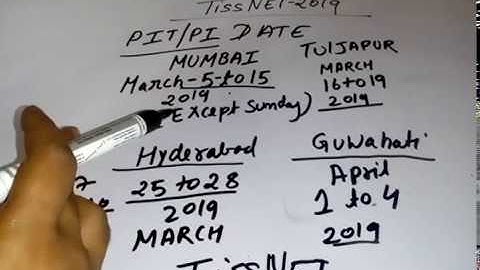 TissNET-2019
PIT/PI DATE
MUMBAI
March-5-to 15
2019
Except Sunday)
TulJAPUR
MARCH
16 to 19
2019
Hyderabad
25 to 28
2019
MARCH
Guwahati
April
1 to 4
2019
TissNET